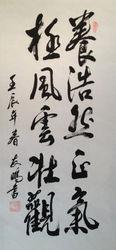 養浩然正氣
極風雲壯觀
壬辰年春友鵬書